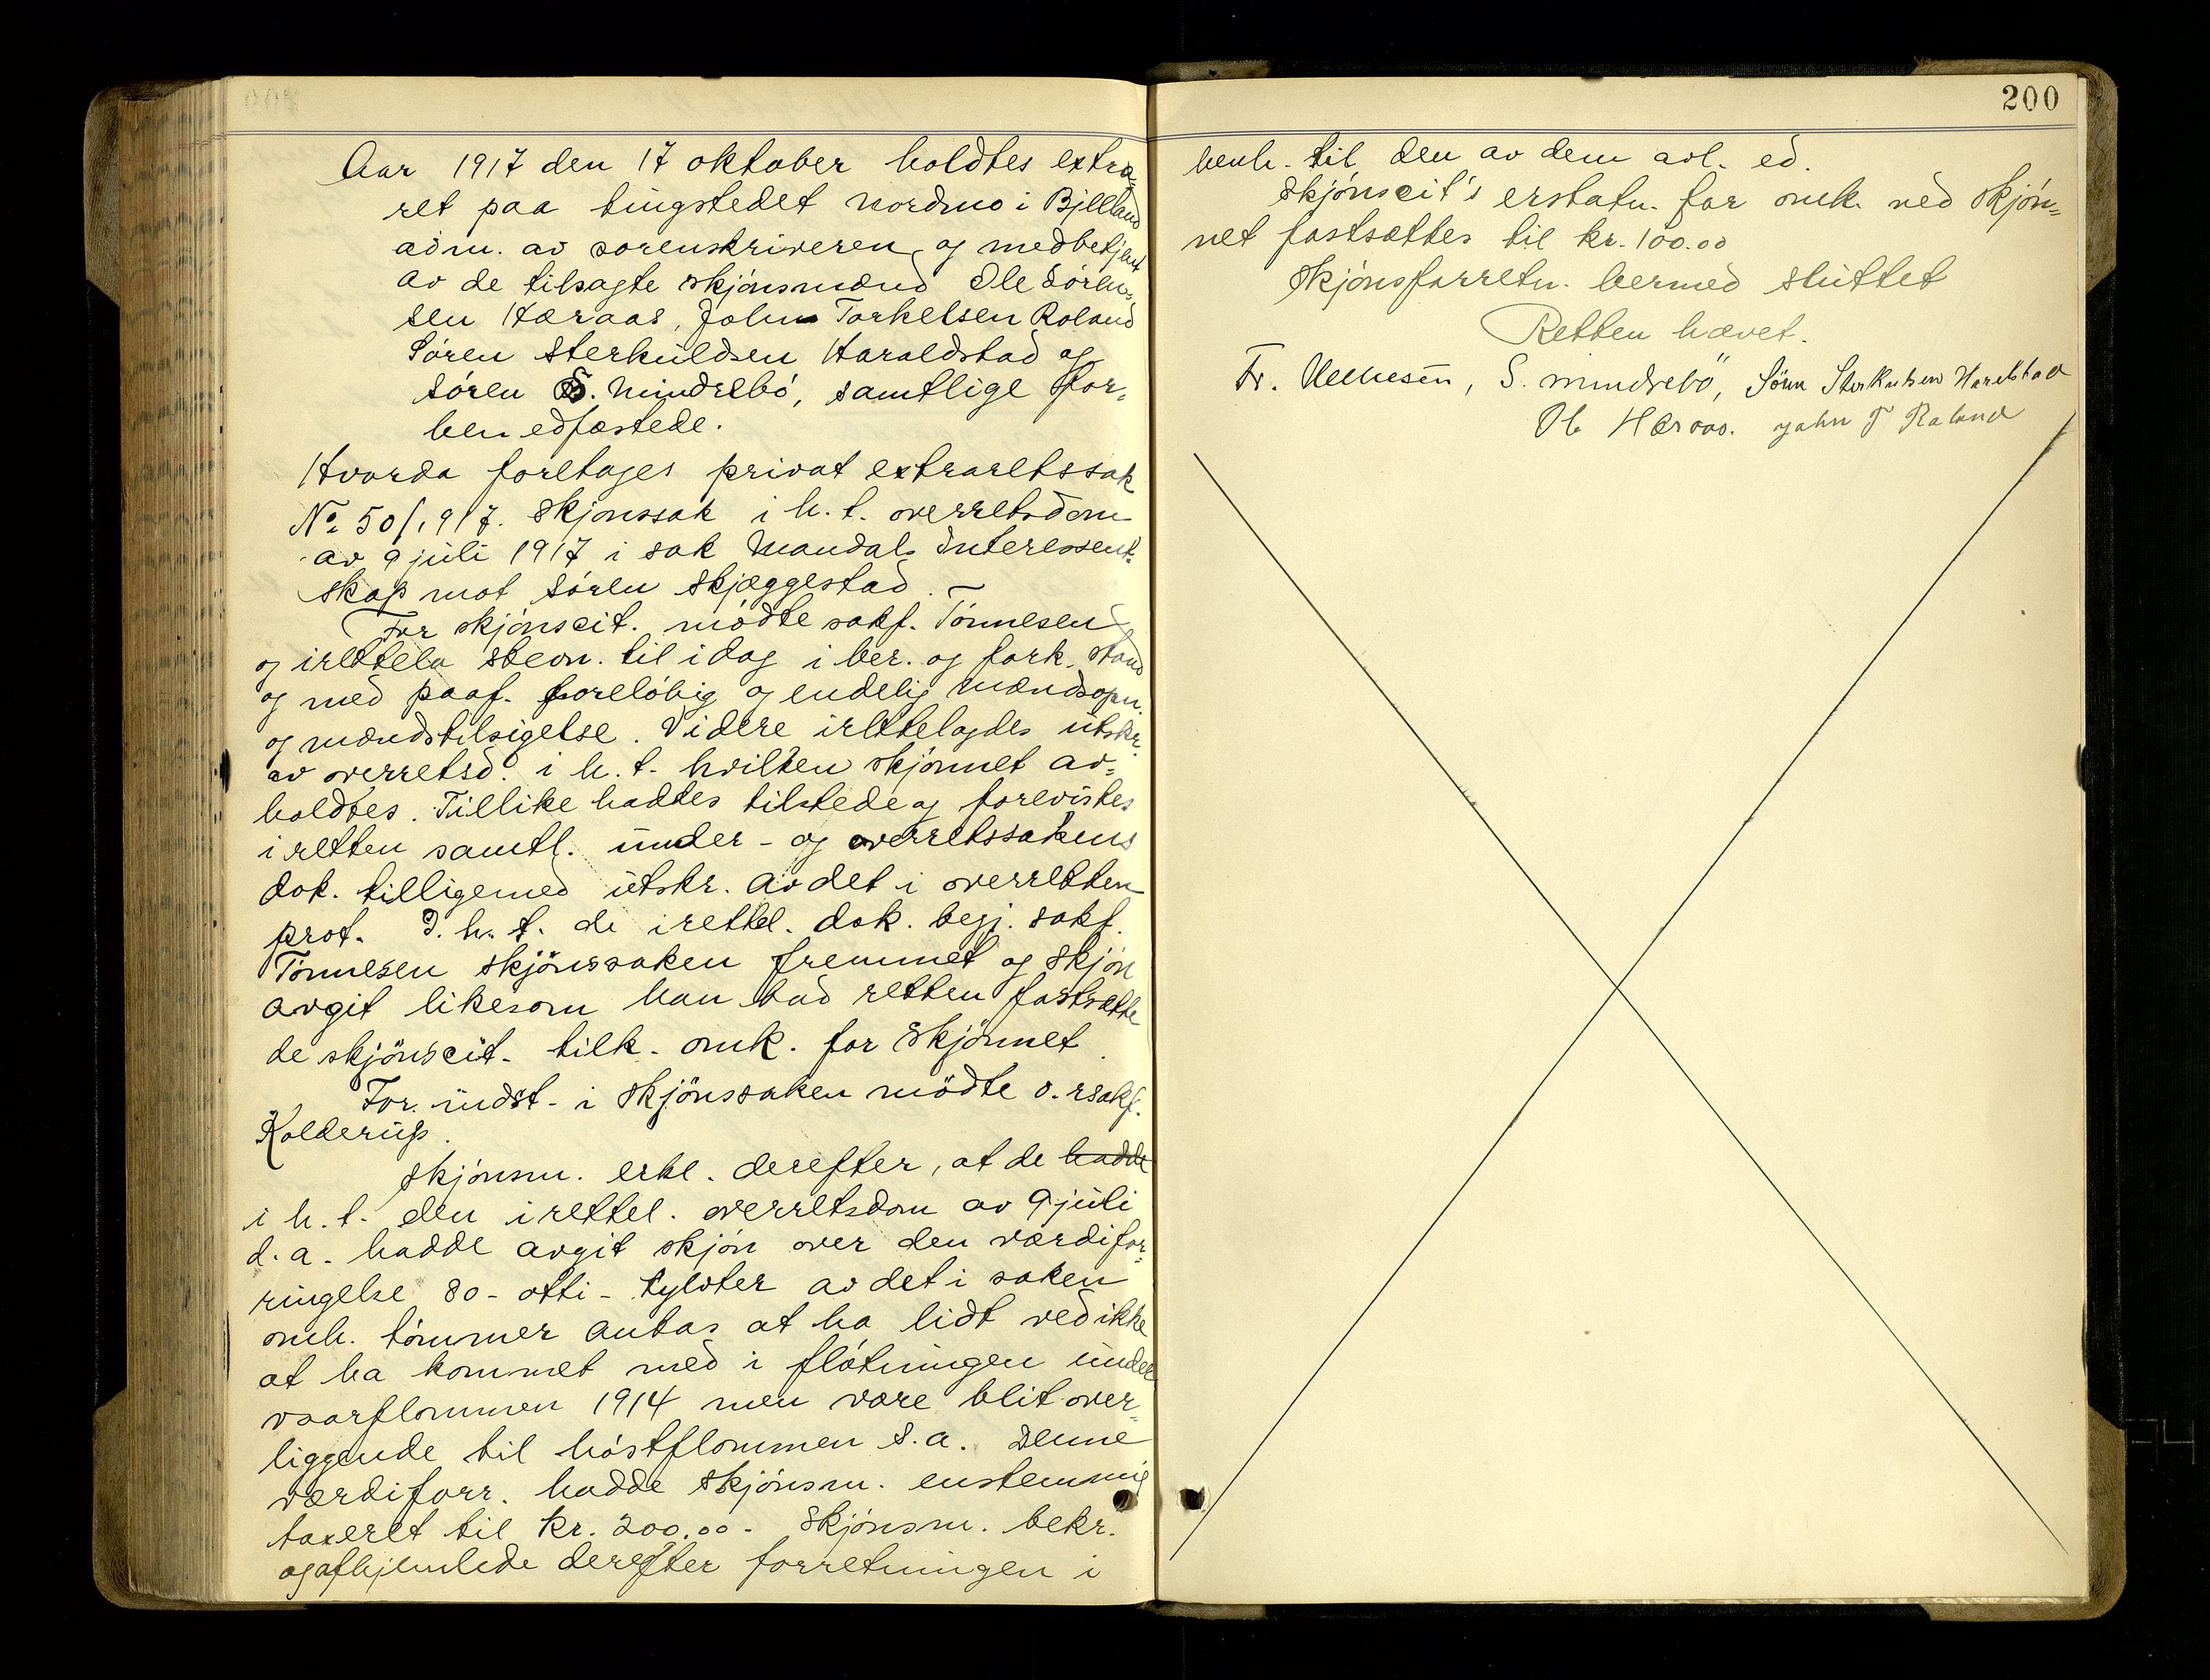 Aar 1917 den 17 oktober holdtes extra-
ret paa tingstedet Nordmo i Bjelland
adm. av sorenskriveren og medbetjent
av de tilsagte skjønsmænd Ole Søren-
sen Høraas, John Torkelsen Roland
Søren Sterkuldsen Haraldstad og
Søren S. Mindrebø, samtlige for-
hen edfæstede.
Hvorda foretages privat extraretssak
No. 50/1917. Skjønssak i h. t. overretsdom
av 9 juli 1917 i sak Mandals Interessent-
skap mot Søren Skjæggestad.
For skjønscit. mødte sakf. Tønnesen
og irettela stevn. til idag i ber. og fork. stand
og med paaf. foreløbig og endelig mændsopn.
og mændstilsigelse. Videre irettelagdes utskr.
av overretsd. i h. t. hvilken skjønnet av-
holdtes. Tillike hadtes tilstede og forevistes
i retten samtl. under- og overretssakens
dok. tilligemed utskr. av det i overretten
prot. I. h. t. de irettel. dok. begj. sakf.
Tønnesen skjønssaken fremmet og skjøn
avgit likesom han bad retten fastsætte
de skjönscit. tilk. omk. for skjönnet.
For indst. i skjönssaken mödte o.rsakf.
Kolderup.
Skjønsm. erkl. derefter, at de hadde
i h. t. den irettel. overretsdom av 9 juli
d. a. hadde avgit skjøn over den værdifor-
ringelse 80 - otti - tylvter av det i saken
omh. tømmer antas at ha lidt ved ikke
at ha kommet med i fløtningen under
vaarflommen 1914 men være blit over-
liggende til høstflommen s. a. Denne
værdiforr. hadde skjønsm. enstemmig
taxeret til kr. 200.00 - Skjønsm. bekr.
og afhjemlede derefter forretningen i
200
henh. til den av dem avl. ed.
Skjønscit's erstatn. for omk. ved skjøn-
net fastsættes til kr. 100.00
Skjønsforretn. hermed sluttet
Retten hævet.
Fr. , S. Mindrebö, Sören Sterkulsen Haralstad
Ole Høraas. John T Roland